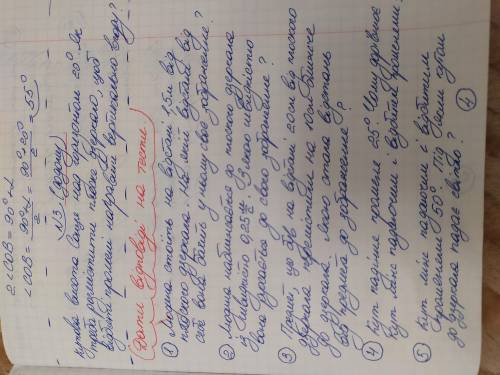 2∠COB = 90° - α
∠COB = (90° - α)/2 = (90° - 20°)/2 = 55°
№3 (задачу)
Кутова висота Сонця над горизонтом 20°. Як
треба розмістити плоске дзеркало, щоб
відбиті промені направити вертикально вгору?
(Дати відповіді на тести)
① Людина стоїть на відстані 1,5 м від
плоского дзеркала. На якій відстані від
себе вона бачить у ньому своє зображення?
② Людина наближається до плоского дзеркала
зі швидкістю 0,25 м/с. З якою швидкістю
вона рухається до свого зображення?
③ Предмет, що був на відстані 20 см від плоского
дзеркала, перемістили на 10 см ближче
до дзеркала. Якою стала відстань
від предмета до зображення?
④ Кут падіння променя 25°. Чому дорівнює
кут між падаючим і відбитим променями?
⑤ Кут між падаючим і відбитим
променями 50°. Під яким кутом
до дзеркала падає світло?
④